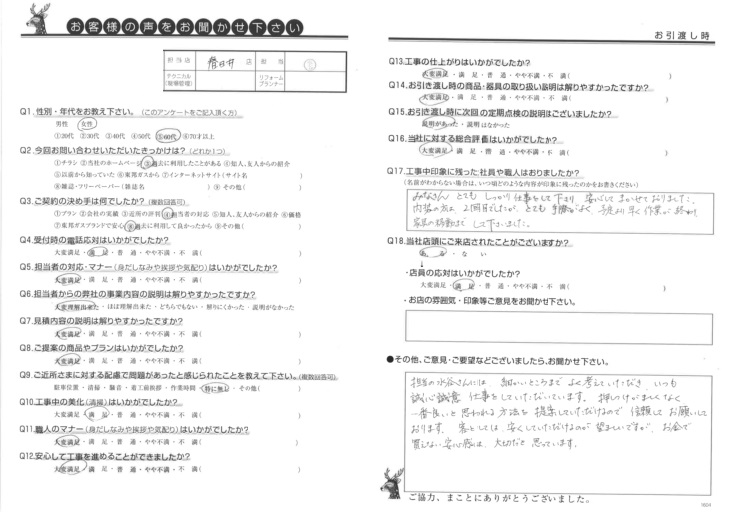 お客様の声をお聞かせ下さい
担当店 春日井 店 担当
テクニカル(現場管理) リフォームプランナー
Q1.性別・年代をお教え下さい。(このアンケートをご記入頂く方)
男性 女性
①20代 ②30代 ③40代 ④50代 ⑤60代 ⑥70才以上
Q2.今回お問い合わせいただいたきっかけは?(どれか1つ)
①チラシ ②当社のホームページ ③過去に利用したことがある ④知人、友人からの紹介
⑤以前から知っていた ⑥東邦ガスから ⑦インターネットサイト(サイト名 )
⑧雑誌・フリーペーパー(雑誌名 ) ⑨その他( )
Q3.ご契約の決め手は何でしたか?(複数回答可)
①プラン ②会社の実績 ③近所の評判 ④担当者の対応 ⑤知人、友人からの紹介 ⑥価格
⑦東邦ガスブランドで安心 ⑧過去に利用して良かったから ⑨その他( )
Q4.受付時の電話応対はいかがでしたか?
大変満足・満 足・普 通・やや不満・不 満( )
Q5.担当者の対応・マナー(身だしなみや挨拶や気配り)はいかがでしたか?
大変満足・満 足・普 通・やや不満・不 満( )
Q6.担当者からの弊社の事業内容の説明は解りやすかったですか?
大変理解出来た・ほぼ理解出来た・どちらでもない・解りにくかった・説明がなかった
Q7.見積内容の説明は解りやすかったですか?
大変満足・満 足・普 通・やや不満・不 満( )
Q8.ご提案の商品やプランはいかがでしたか?
大変満足・満 足・普 通・やや不満・不 満( )
Q9.ご近所さまに対する配慮で問題があったと感じられたことを教えて下さい。(複数回答可)
駐車位置・清掃・騒音・着工前挨拶・作業時間・特に無し・その他( )
Q10.工事中の美化(清掃)はいかがでしたか?
大変満足・満 足・普 通・やや不満・不 満( )
Q11.職人のマナー(身だしなみや挨拶や気配り)はいかがでしたか?
大変満足・満 足・普 通・やや不満・不 満( )
Q12.安心して工事を進めることができましたか?
大変満足・満 足・普 通・やや不満・不 満( )
お引渡し時
Q13.工事の仕上がりはいかがでしたか?
大変満足・満 足・普 通・やや不満・不 満( )
Q14.お引き渡し時の商品・器具の取り扱い説明は解りやすかったですか?
大変満足・満 足・普 通・やや不満・不 満( )
Q15.お引き渡し時に次回の定期点検の説明はございましたか?
説明があった・説明はなかった
Q16.当社に対する総合評価はいかがでしたか?
大変満足・満 足・普 通・やや不満・不 満( )
Q17.工事中印象に残った社員や職人はおりましたか?
(名前がわからない場合は、いつ頃どのような内容が印象に残ったのかをお書きください)
みなさん とても しっかり仕事をして下さり 安心して まかせておりました。
内装の方は、2回目でしたが、とても 手際がよく、予定より早く 作業が終わり、
家具の移動まで して下さいました。
Q18.当社店頭にご来店されたことがございますか?
ある・ない
↓
・店員の応対はいかがでしたか?
大変満足・満 足・普 通・やや不満・不 満( )
・お店の雰囲気・印象等ご意見をお聞かせ下さい。
●その他、ご意見・ご要望などございましたら、お聞かせ下さい。
担当の水谷さんには、細かいところまで よく考えていただき、いつも
誠心誠意 仕事をしていただいています。 押しつけがましくなく
一番良いと思われる方法を 提案していただけるので 信頼して お願いして
おります。 客としては 安くしていただけるのが 望ましいですが、お金で
買えない安心感は、大切だと 思っています。
ご協力、まことにありがとうございました。
1604